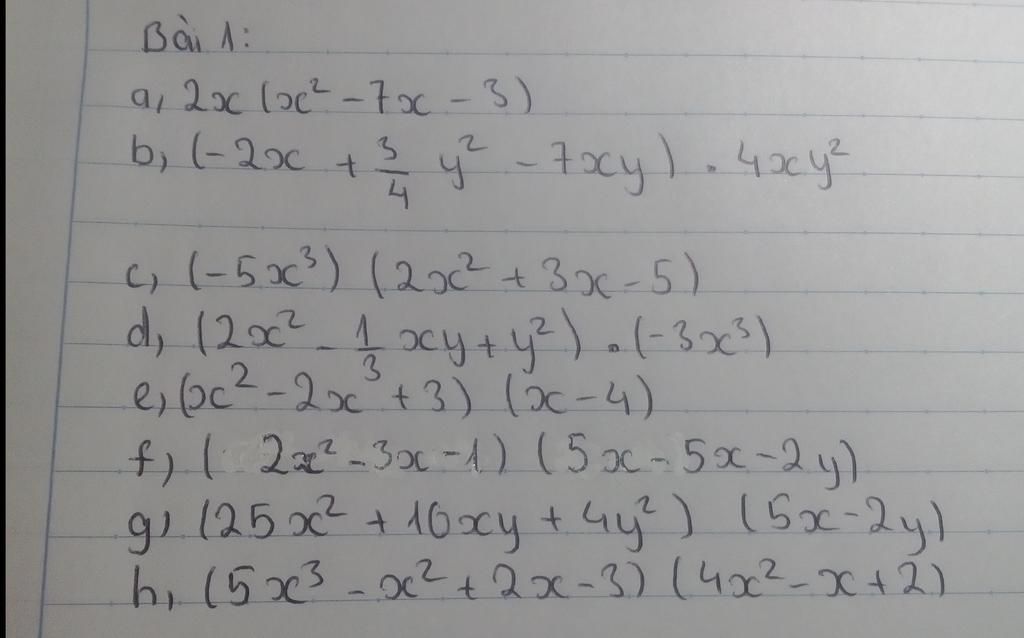 Bài 1:
a, 2x (x² - 7x - 3)
b, (-2x + 3/4 y² - 7xy) . 4xy²
c, (-5x³) (2x² + 3x - 5)
d, (2x² - 1/3 xy + y²) . (-3x³)
e, (x² - 2x + 3) (x - 4)
f, ( 2x² - 3x - 1) (5x - 5x - 2y)
g, (25x² + 10xy + 4y²) (5x - 2y)
h, (5x³ - x² + 2x - 3) (4x² - x + 2)